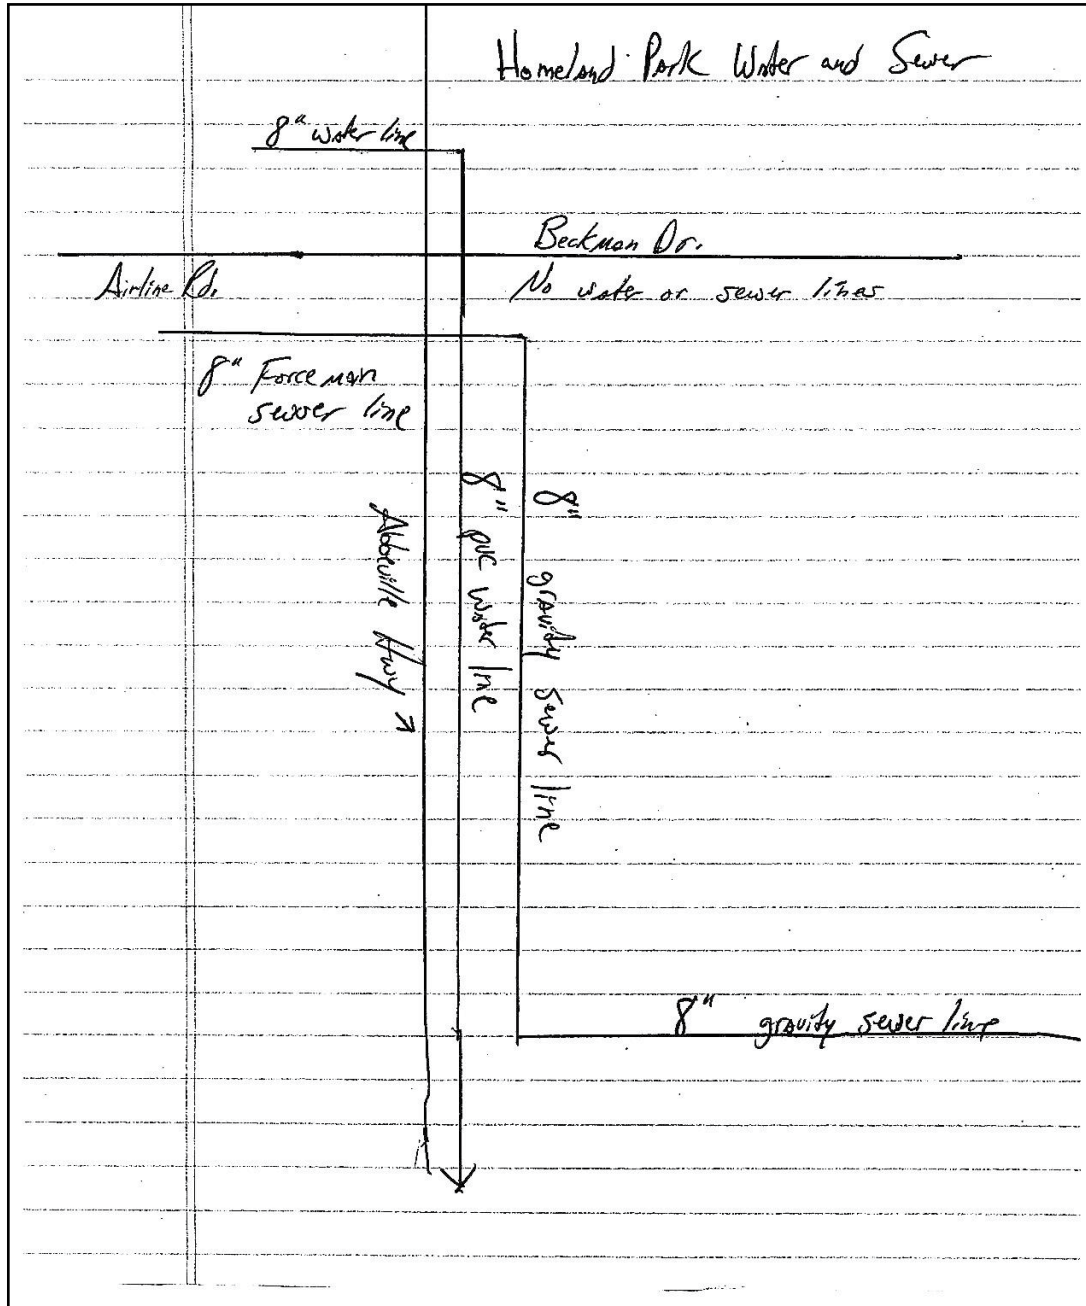 Homeland Park Water and Sewer
8" water line
Beckman Dr.
Airline Rd.
No water or sewer lines
8" Force main
sewer line
Abbeville Hwy →
8" pvc water line
8" gravity sewer line
8" gravity sewer line